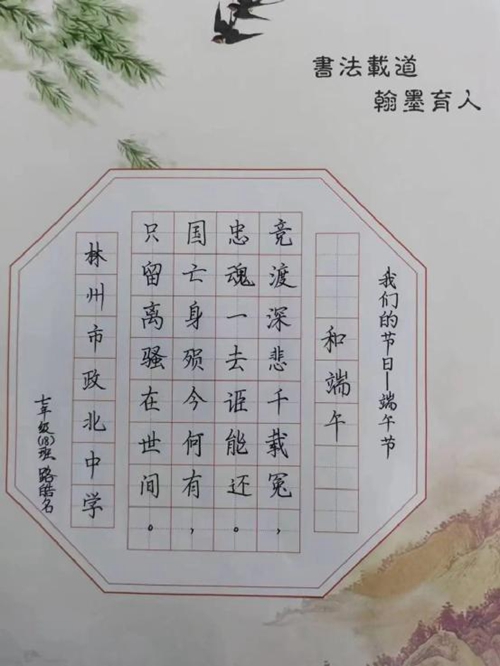 書法載道
翰墨育人
我们的节日—端午节
和端午
竞渡深悲千载冤，
忠魂一去讵能还。
国亡身殒今何有，
只留离骚在世间。
林州市政北中学
七年级(18)班 路皓名